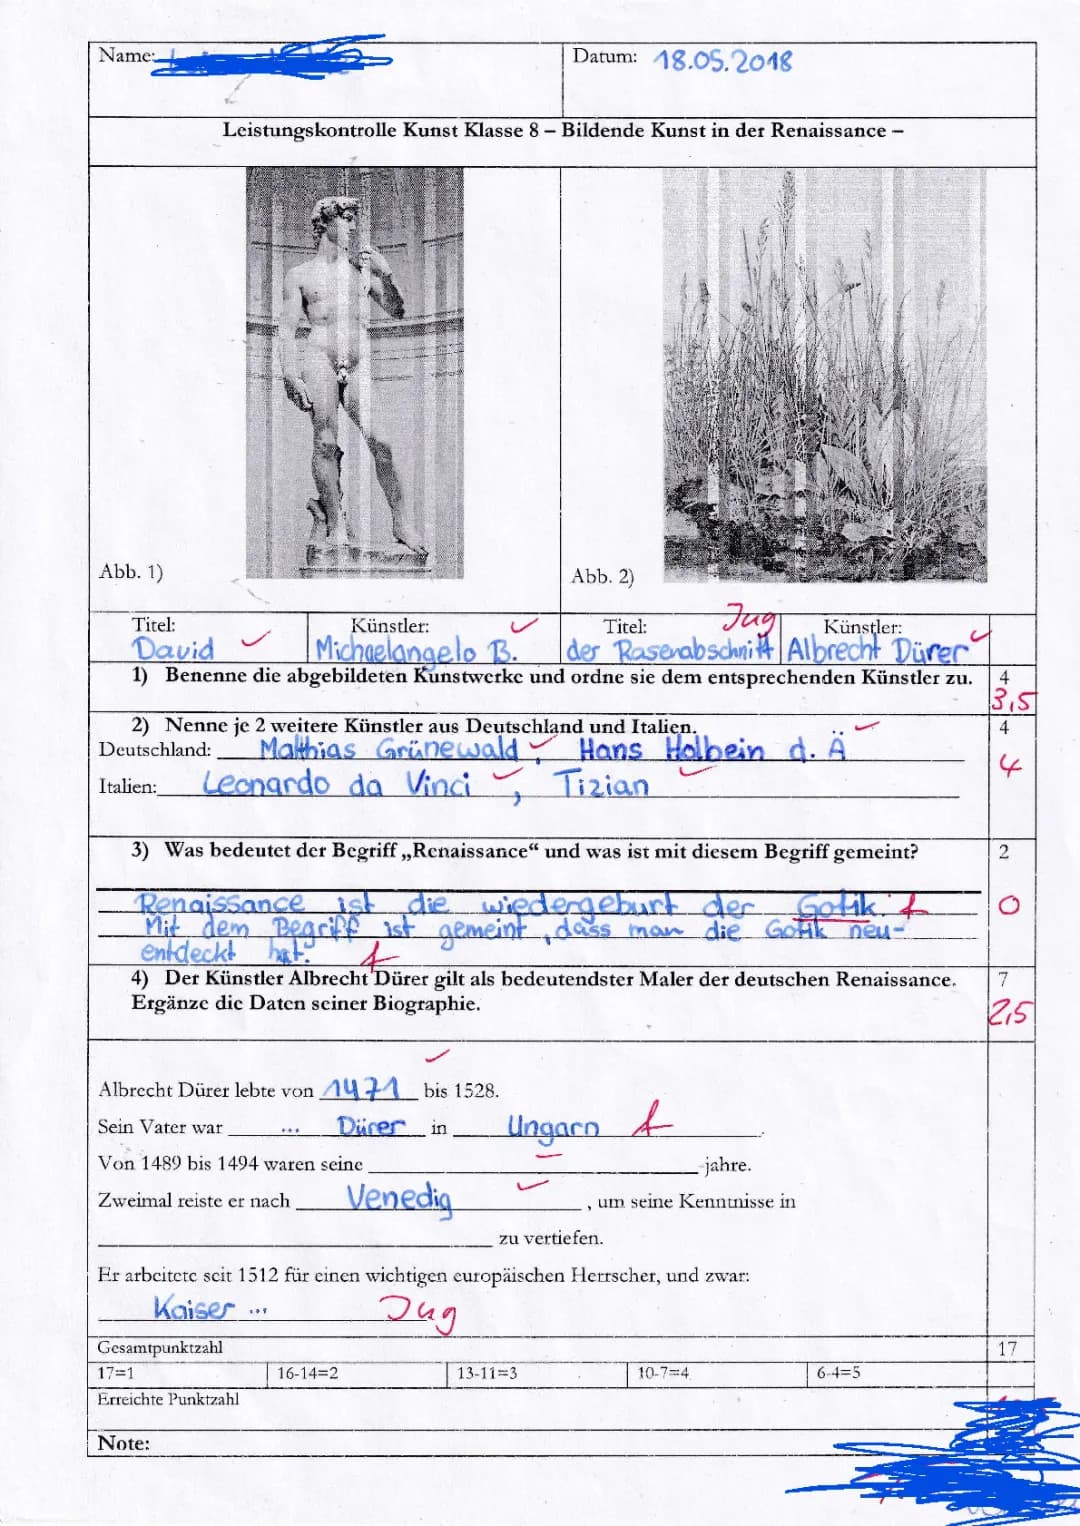 Name:
Datum: 18.05.2018
Leistungskontrolle Kunst Klasse 8 – Bildende Kunst in der Renaissance –
Abb. 1)
Abb. 2)
Titel: Künstler: Titel: Jug Künstler:
David Michaelangelo B. der Rasenabschnitt Albrecht Dürer
1) Benenne die abgebildeten Kunstwerke und ordne sie dem entsprechenden Künstler zu. 4
3,5
2) Nenne je 2 weitere Künstler aus Deutschland und Italien. 4
Deutschland: Matthias Grünewald, Hans Holbein d. Ä
4
Italien: Leonardo da Vinci, Tizian
3) Was bedeutet der Begriff „Renaissance“ und was ist mit diesem Begriff gemeint? 2
Renaissance ist die wiedergeburt der Gotik. f 0
Mit dem Begriff ist gemeint, dass man die Gotik neu-
entdeckt hat. f
4) Der Künstler Albrecht Dürer gilt als bedeutendster Maler der deutschen Renaissance. 7
Ergänze die Daten seiner Biographie. 2,5
Albrecht Dürer lebte von 1471 bis 1528.
Sein Vater war ... Dürer in Ungarn f.
Von 1489 bis 1494 waren seine -jahre.
Zweimal reiste er nach Venedig, um seine Kenntnisse in
zu vertiefen.
Er arbeitete seit 1512 für einen wichtigen europäischen Herrscher, und zwar:
Kaiser ... Jug
Gesamtpunktzahl 17
17=1 16-14=2 13-11=3 10-7=4 6-4=5
Erreichte Punktzahl
Note: